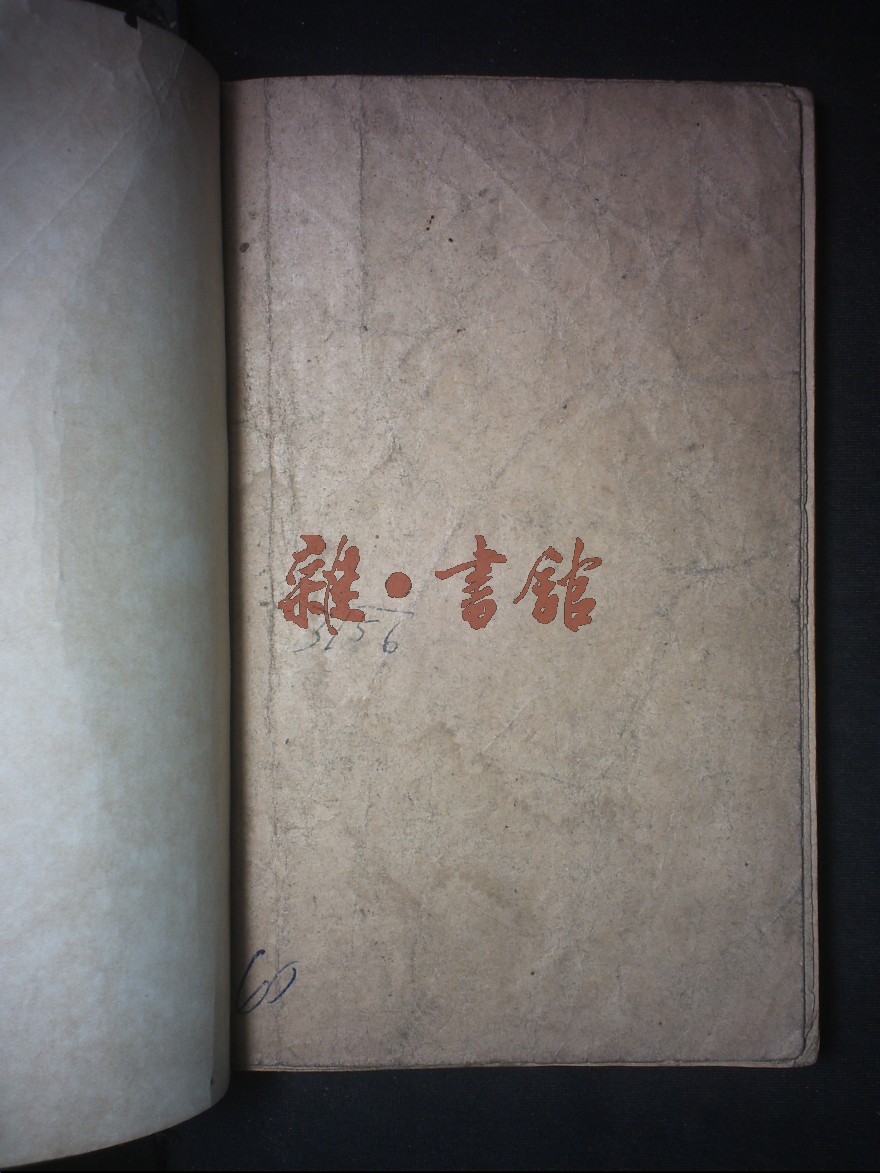 雜·書館
5156
60